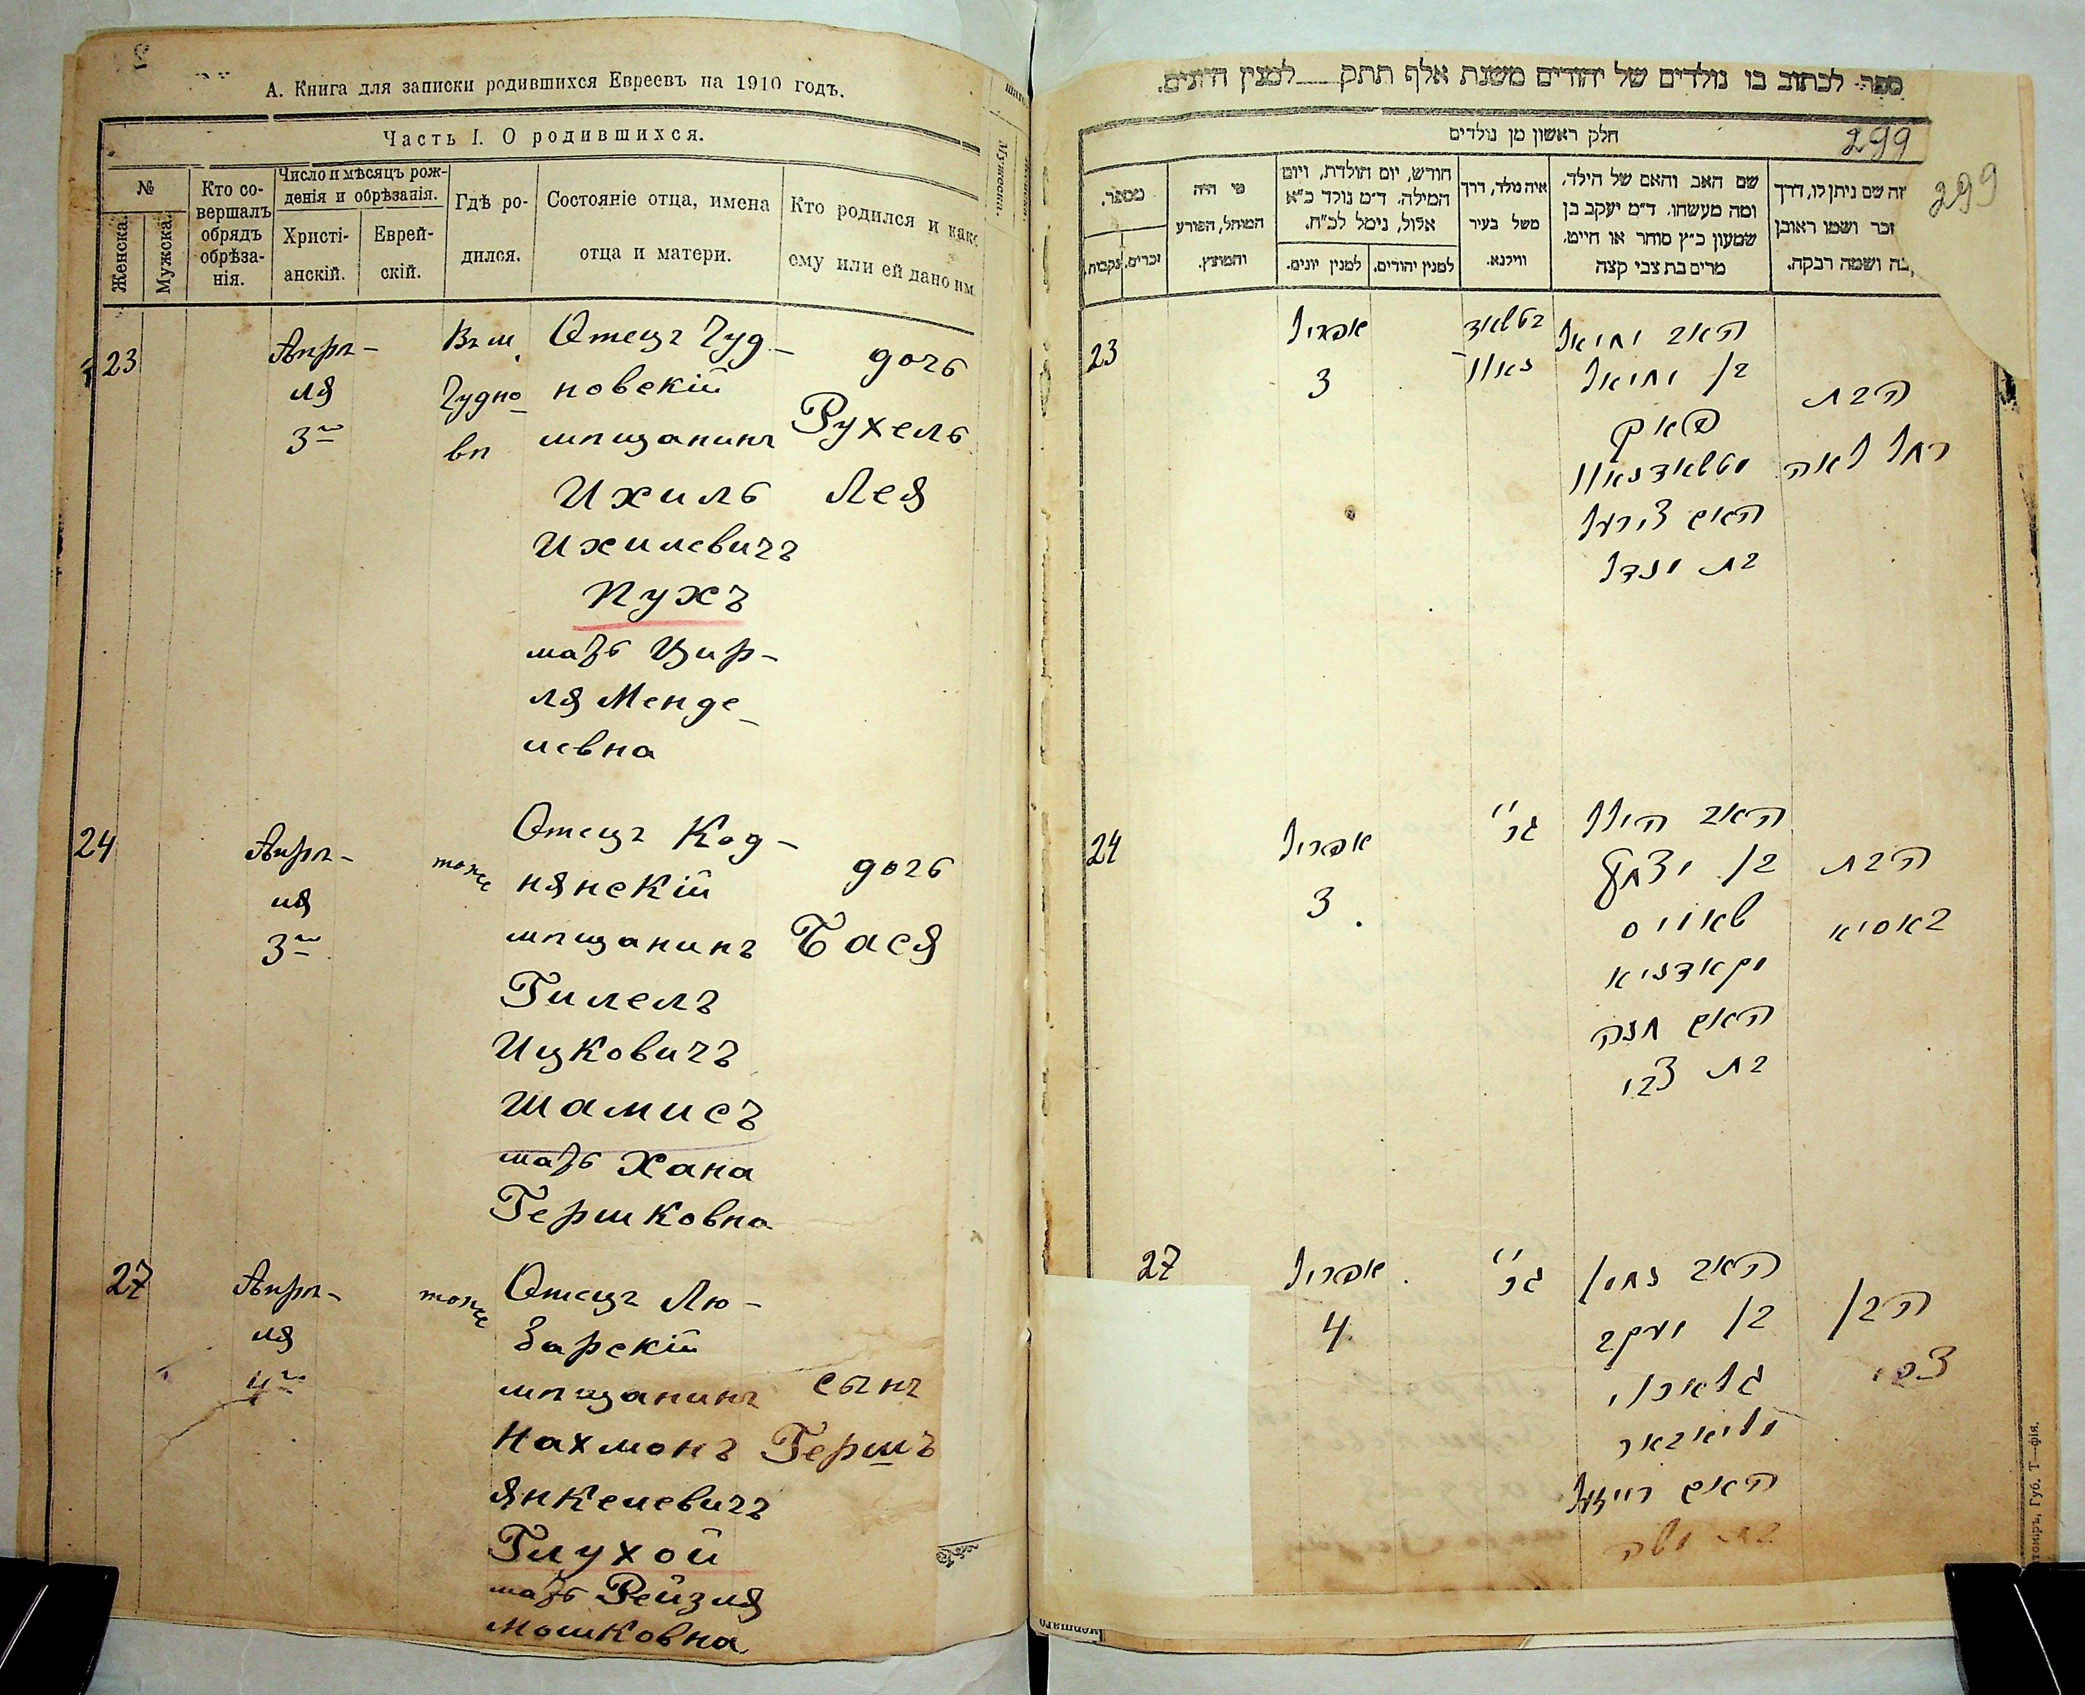 А. Книга для записки родившихся Евреевъ на 1910 годъ.
Часть I. О родившихся.
№
Женска.
Мужска.
Кто со-
вершалъ
обрядъ
обрѣза-
нія.
Число и мѣсяцъ рож-
денія и обрѣзанія.
Христі-
анскій.
Еврей-
скій.
Гдѣ ро-
дился.
Состояніе отца, имена
отца и матери.
Кто родился и како
ему или ей дано им
23
Апрѣ-
ля
3го
Въ м.
Чудно-
вѣ
Отецъ Чуд-
новскій
мѣщанинъ
Ихиль
Ихилевичъ
Пухъ
мать Цир-
ля Менде-
левна
дочь
Рухель
Лея
24
Апрѣ-
ля
3го
тоже
Отецъ Код-
нянскій
мѣщанинъ
Гилелъ
Ицковичъ
Шамисъ
мать Хана
Гершковна
дочь
Бася
27
Апрѣ-
ля
4го
тоже
Отецъ Лю-
барскій
мѣщанинъ
Нахмонъ
Янкелевичъ
Глухой
мать Рейзля
Мошковна
сынъ
Гершъ
ספר לכתוב בו נולדים של יהודים משנת אלף תתק למנין היונים.
חלק ראשון מן נולדים
299
299
מספר.
נקבות.
זכרים.
מי היה
המוהל, הפורע
והמוצץ.
חודש, יום הולדת, ויום
המילה. ד״מ נולד כ״א
אלול, נימל לכ״ח.
למנין יונים.
למנין יהודים.
איה נולד, דרך
משל בעיר
ווילנא.
שם האב והאם של הילד,
ומה מעשהו. ד״מ יעקב בן
שמעון כ״ץ סוחר או חייט,
מרים בת צבי קצה
זה שם ניתן לו, דרך
זכר ושמו ראובן
בה ושמה רבקה.
23
אפריל
3
האב יחיאל
בן יחיאל
פאק
האם צירעל
בת
הבת
רחל לאה
24
אפריל
3
האב הילל
בן יצחק
האם חנה
בת צבי
הבת
באסיא
27
אפריל
4
האב נחמן
בן יעקב
האם רייזעל
בת משה
הבן
צבי
томіръ, Губ. Т—фія.